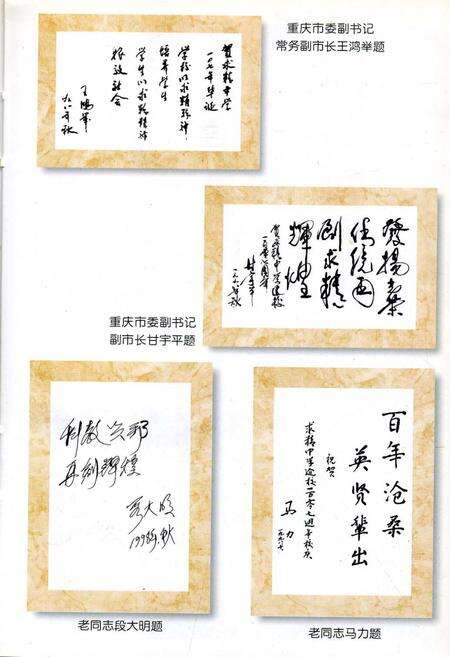 重庆市委副书记
常务副市长王鸿举题
贺求精中学
一〇七年华诞
学校以求精聆神
培养学生
学生以求精精神
报效社会
王鸿举
九八年秋
重庆市委副书记
副市长甘宇平题
发扬嘉
传统再
创求精
辉煌
贺求精中学建校
一百〇七周年
甘宇平
一九九八年秋
科教兴邦
再创辉煌
段大明
1998年.秋
老同志段大明题
百年沧桑
英贤辈出
祝贺
求精中学建校一百零七週年校庆
马力
一九九八.
老同志马力题